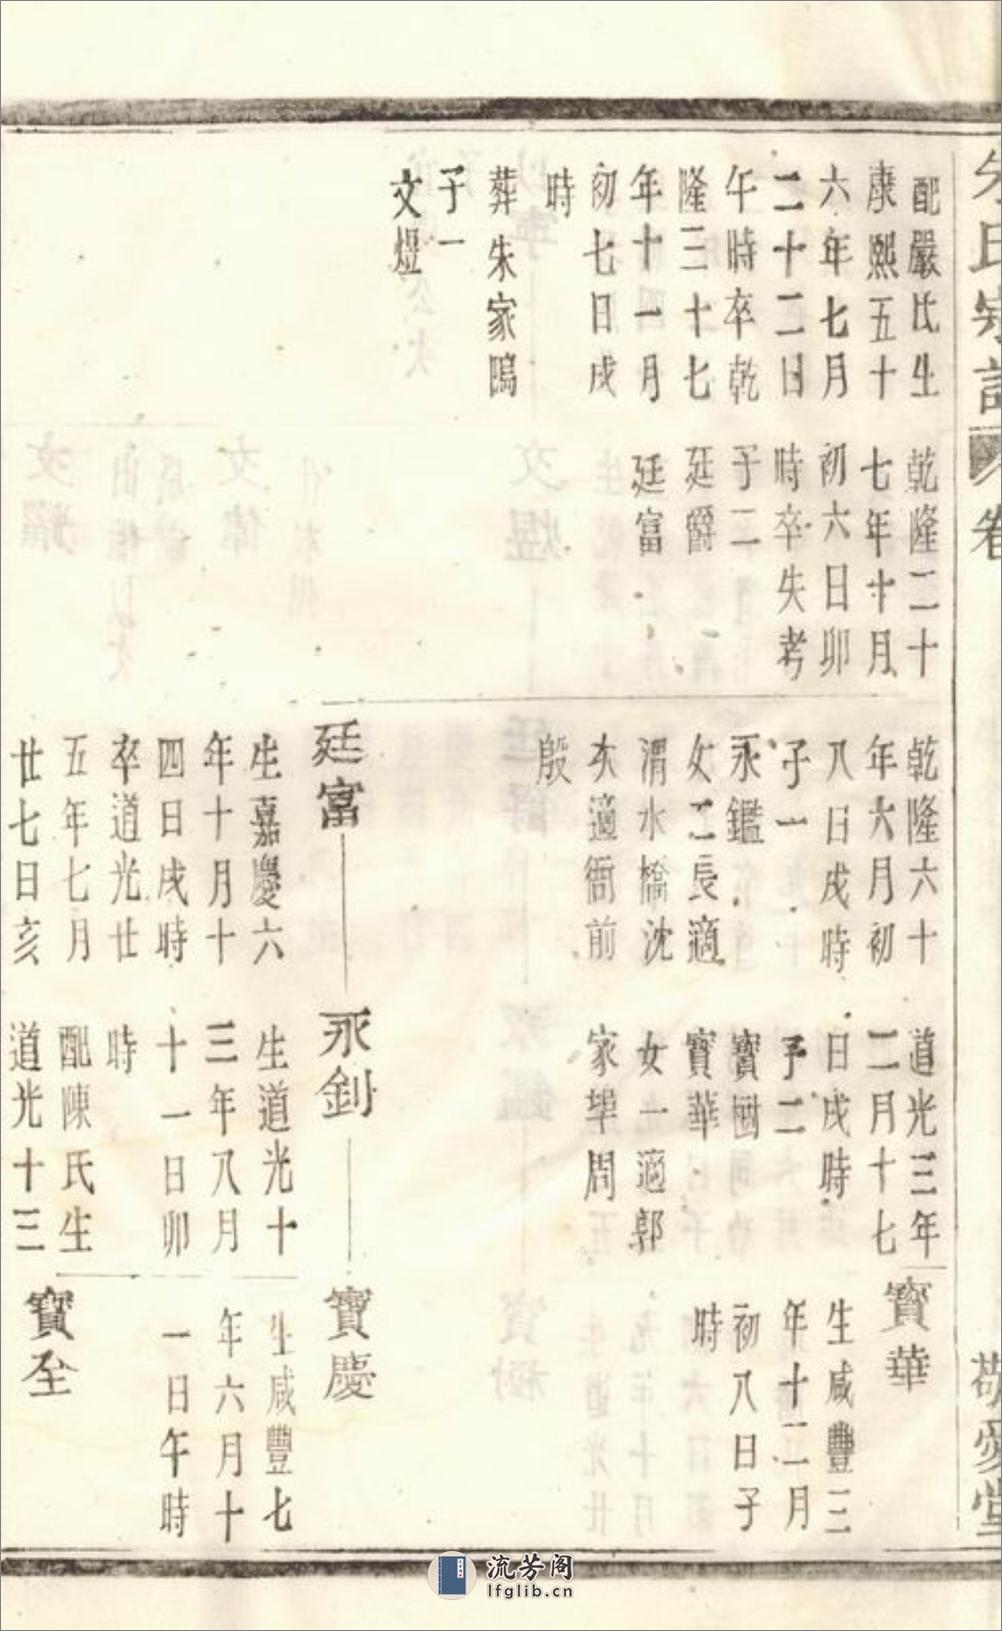 朱氏宗譜 卷
敬愛堂
配嚴氏生
康熙五十
六年七月
二十二日
午時卒乾
隆三十七
年十一月
初七日戌
時
葬朱家鴫
子一
文煜
乾隆二十
七年十月
初六日卯
時卒失考
子二
廷爵
廷富
乾隆六十
年六月初
八日戌時
子一
永鑑
女二長適
渭水橋沈
次適衙前
殷
道光三年
二月十七
日戌時
子二
寶國
寶華
女一適郭
家埲周
寶華
生咸豐三
年十二月
初八日子
時
廷富
生嘉慶六
年十月十
四日戌時
卒道光廿
五年七月
廿七日亥
永釗
生道光十
三年八月
十一日卯
時
配陳氏生
道光十三
寶慶
生咸豐七
年六月十
一日午時
寶全
流芳阁
lfglib.cn